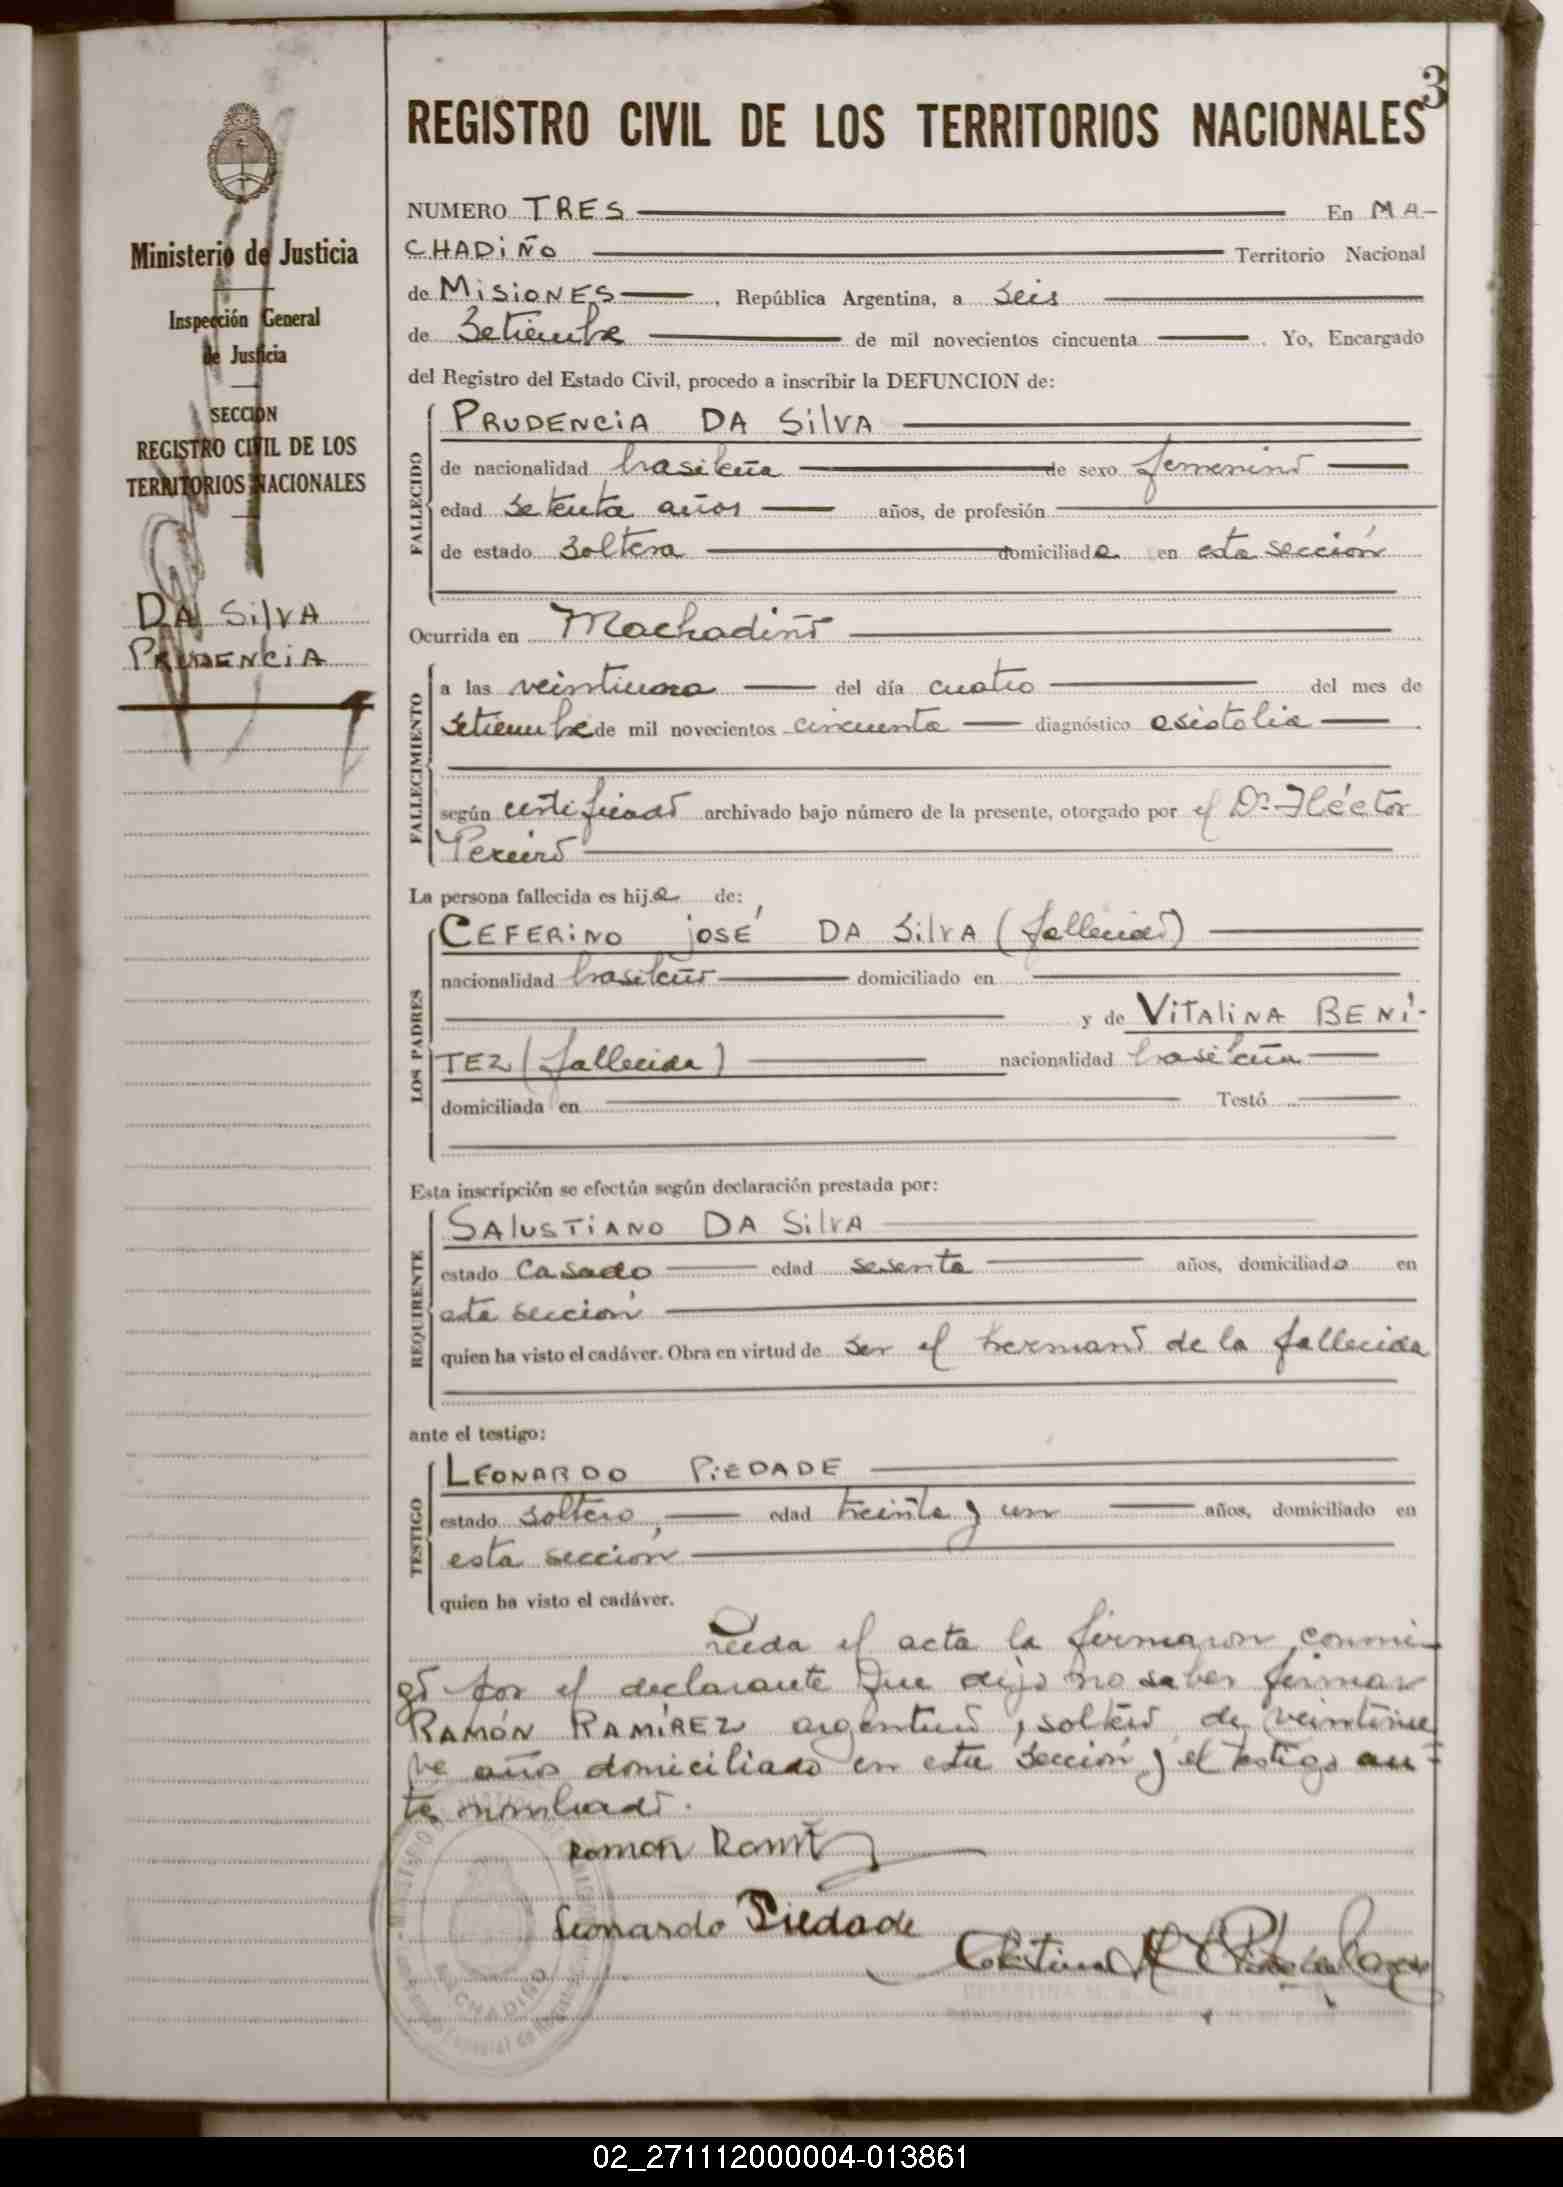 3
REGISTRO CIVIL DE LOS TERRITORIOS NACIONALES
Ministerio de Justicia
Inspección General
de Justicia
SECCIÓN
REGISTRO CIVIL DE LOS
TERRITORIOS NACIONALES
DA SILVA
PRUDENCIA
NUMERO TRES En MA-
CHADIÑO Territorio Nacional
de MISIONES, República Argentina, a seis
de Setiembre de mil novecientos cincuenta. Yo, Encargado
del Registro del Estado Civil, procedo a inscribir la DEFUNCION de:
FALLECIDO
PRUDENCIA DA SILVA
de nacionalidad brasileña de sexo femenino
edad setenta años años, de profesión
de estado soltera domiciliada en esta sección
Ocurrida en Machadiño
FALLECIMIENTO
a las del día cuatro del mes de
setiembre de mil novecientos cincuenta diagnóstico asistolia
según certificado archivado bajo número de la presente, otorgado por el Dr. Héctor
La persona fallecida es hija de:
LOS PADRES
CEFERINO JOSÉ DA SILVA (fallecido)
nacionalidad brasileño domiciliado en
y de VITALINA BENÍ-
TEZ (fallecida) nacionalidad brasileña
domiciliada en Testó
Esta inscripción se efectúa según declaración prestada por:
REQUIRENTE
SALUSTIANO DA SILVA
estado casado edad sesenta años, domiciliado en
esta sección
quien ha visto el cadáver. Obra en virtud de ser el hermano de la fallecida
ante el testigo:
TESTIGO
LEONARDO PIEDADE
estado soltero, edad treinta y un años, domiciliado en
esta sección
quien ha visto el cadáver.
Leída el acta la firmaron conmi-
go por el declarante que dijo no saber firmar
RAMÓN RAMÍREZ argentino, soltero de veintinue
ve años domiciliado en esta sección y el testigo an-
te nombrado.
Ramon
Leonardo Piedade
MACHADIÑO
02_271112000004-013861